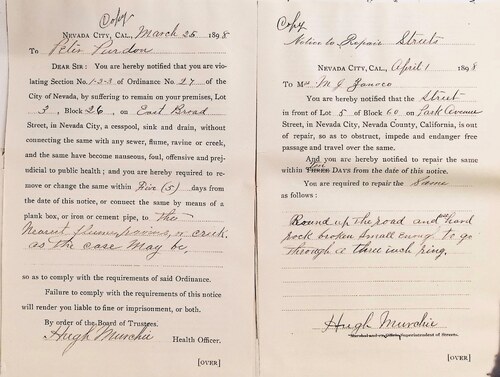 Copy
NEVADA CITY, CAL., March 25 1898
To Peter Purdon
DEAR SIR: You are hereby notified that you are vio-
lating Section No. 1-2-3 of Ordinance No. 27 of the
City of Nevada, by suffering to remain on your premises, Lot
3, Block 26, on East Broad
Street, in Nevada City, a cesspool, sink and drain, without
connecting the same with any sewer, flume, ravine or creek,
and the same have become nauseous, foul, offensive and prej-
udicial to public health; and you are hereby required to re-
move or change the same within Five (5) days from the
date of this notice, or connect the same by means of a
plank box, or iron or cement pipe, to the
Nearest flume, ravine, or creek.
as the case may be,
so as to comply with the requirements of said Ordinance.
Failure to comply with the requirements of this notice
will render you liable to fine or imprisonment, or both.
By order of the Board of Trustees.
Hugh Murchie Health Officer.
[OVER]
Copy
Notice to Repair Streets
NEVADA CITY, CAL., April 1 1898
To M. J.
You are hereby notified that the Street
in front of Lot 5 of Block 60 on Park Avenue
Street, in Nevada City, Nevada County, California, is out
of repair, so as to obstruct, impede and endanger free
passage and travel over the same.
And you are hereby notified to repair the same
within THREE DAYS from the date of this notice.
You are required to repair the Same
as follows:
Round up the road and put hard
rock broken small enug to go
through a three inch ring.
Hugh Murchie
Superintendent of Streets.
[OVER]